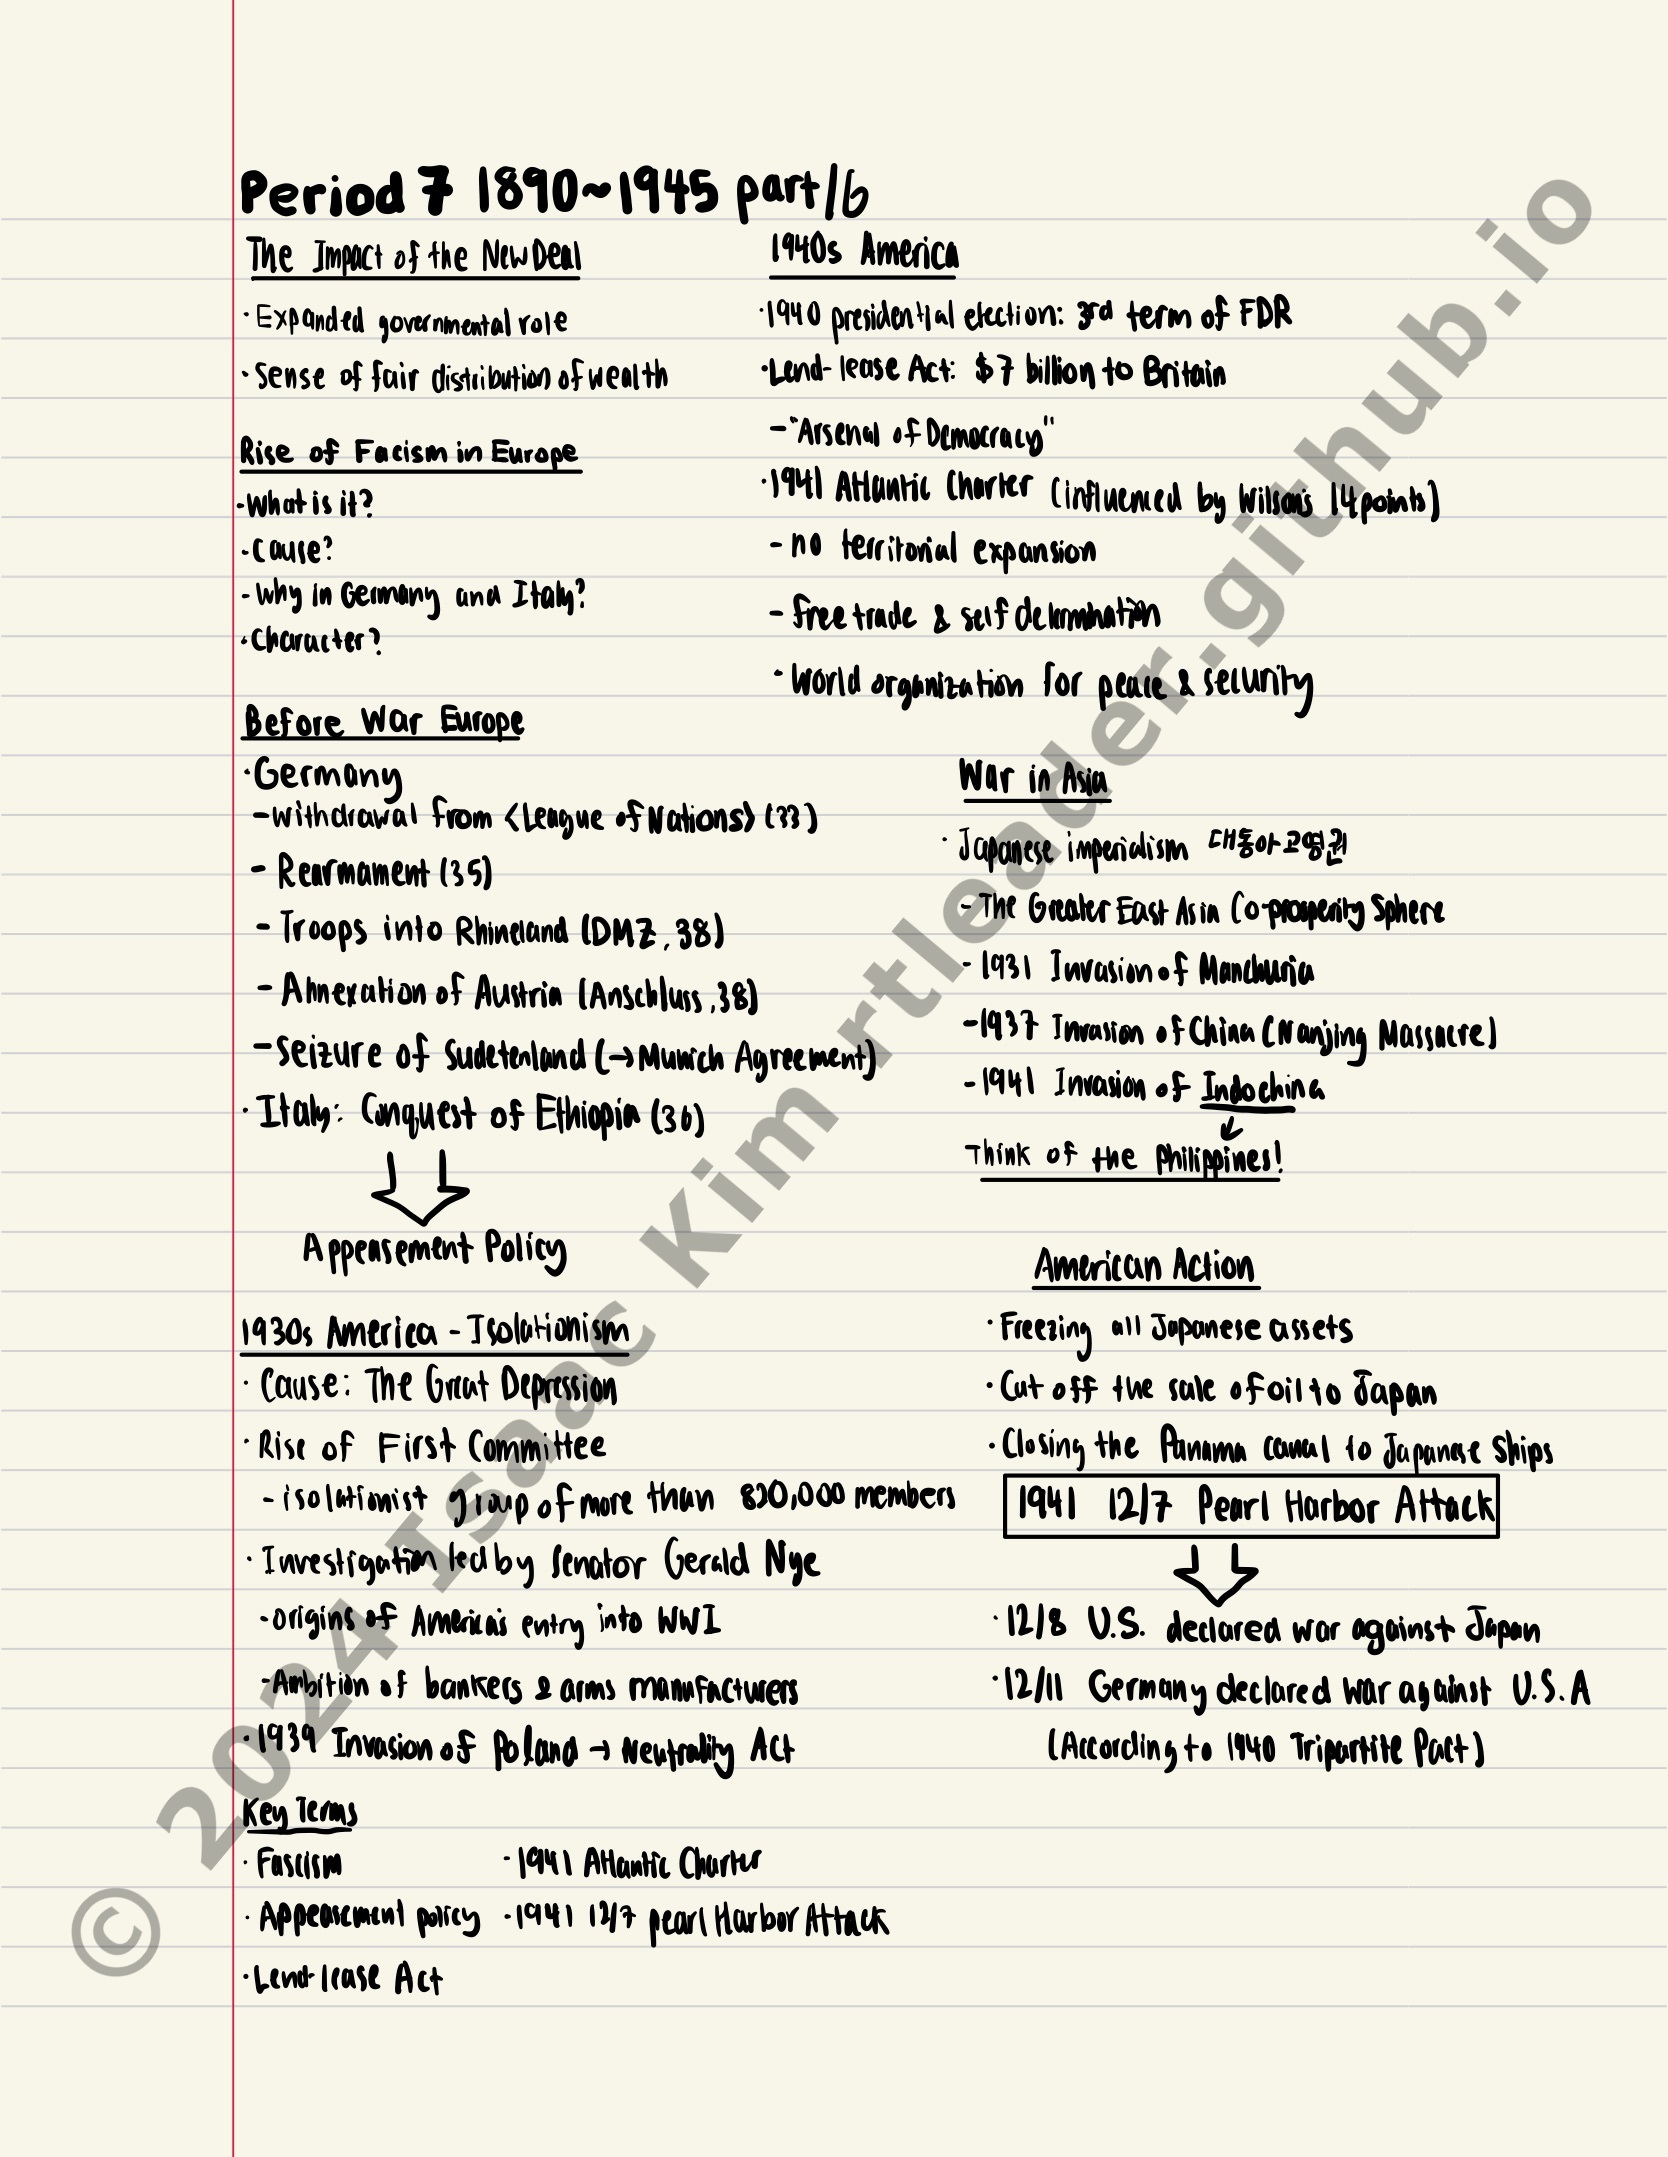 Period 7 1890~1945 part/6
The Impact of the New Deal
· Expanded governmental role
· Sense of fair distribution of wealth
Rise of Facism in Europe
· What is it?
· Cause?
· Why in Germany and Italy?
· Character?
Before War Europe
· Germany
- Withdrawal from <League of Nations> (33)
- Rearmament (35)
- Troops into Rhineland (DMZ, 38)
- Annexation of Austria (Anschluss, 38)
- Seizure of Sudetenland (→ Munich Agreement)
· Italy: Conquest of Ethiopia (36)
Appeasement Policy
1930s America - Isolationism
· Cause: The Great Depression
· Rise of First Committee
- isolationist group of more than 820,000 members
· Investigation led by Senator Gerald Nye
- origins of America's entry into WWI
- Ambition of bankers & arms manufacturers
· 1939 Invasion of Poland → Neutrality Act
Key Terms
· Fascism
· Appeasement policy
· Lend-lease Act
· 1941 Atlantic Charter
· 1941 12/7 pearl Harbor Attack
1940s America
· 1940 presidential election: 3rd term of FDR
· Lend-lease Act: $7 billion to Britain
- "Arsenal of Democracy"
· 1941 Atlantic Charter (influenced by Wilson's 14 points)
- no territorial expansion
- free trade & self determination
- World organization for peace & security
War in Asia
· Japanese imperialism 대동아공영권
- The Greater East Asia Co-prosperity Sphere
- 1931 Invasion of Manchuria
- 1937 Invasion of China (Nanjing Massacre)
- 1941 Invasion of Indochina
Think of the Philippines!
American Action
· Freezing all Japanese assets
· Cut off the sale of oil to Japan
· Closing the Panama canal to Japanese Ships
1941 12/7 Pearl Harbor Attack
· 12/8 U.S. declared war against Japan
· 12/11 Germany declared war against U.S.A
(According to 1940 Tripartite Pact)
© 2024 Isaac Kim rtleader.github.io